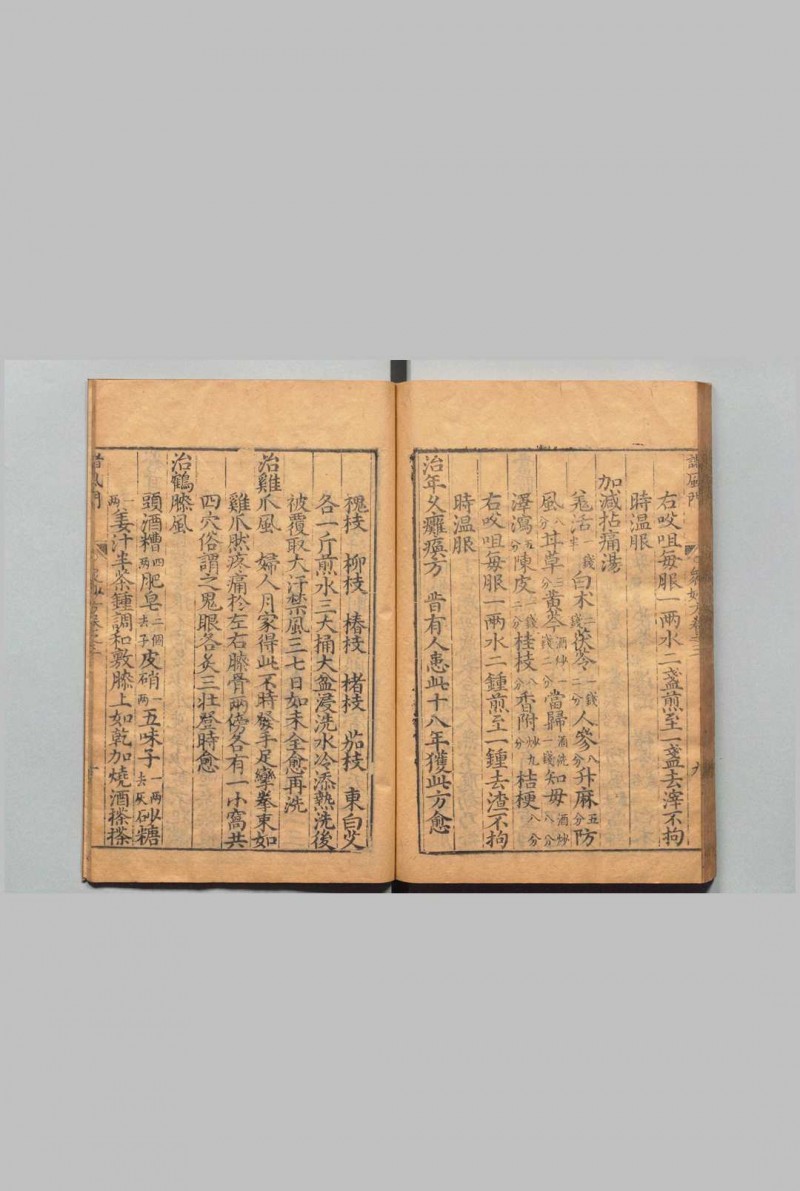 諸風門
右㕮咀每服一兩水二盞煎至一盞去滓不拘
時温服
加減拈痛湯
羗活一錢半白术一錢茯苓一錢二分人參八分升麻五分防
風八分甘草三分黃芩酒炒一錢二分當歸酒洗一錢知母酒炒八分
澤瀉五分陳皮一錢二分桂枝八分香附炒九分桔梗八分
右㕮咀每服一兩水二鍾煎至一鍾去渣不拘
時温服
治年久癱瘓方 昔有人患此十八年獲此方愈
槐枝 柳枝 椿枝 楮枝 茄枝 東白艾
各一斤煎水三大桶大盆浸洗水冷添熱洗後
被覆取大汗禁風三七日如未全愈再洗
治雞爪風 婦人月家得此不時發手足攣拳束如
雞爪然疼痛於左右膝骨兩傍各有一小窩共
四穴俗謂之鬼眼各灸三壯登時愈
治鶴膝風
頭酒糟四兩肥皂二個去子皮硝一兩五味子一兩去灰砂糖
一兩姜汁半茶鍾調和敷膝上如乾加燒酒搽搽